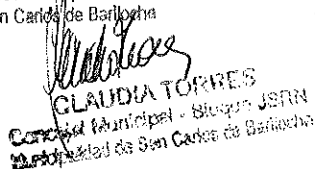 n Carlos de Bariloche
CLAUDIA TORRES
Concejal Municipal - Bloque JSRN
Municipalidad de San Carlos de Bariloche